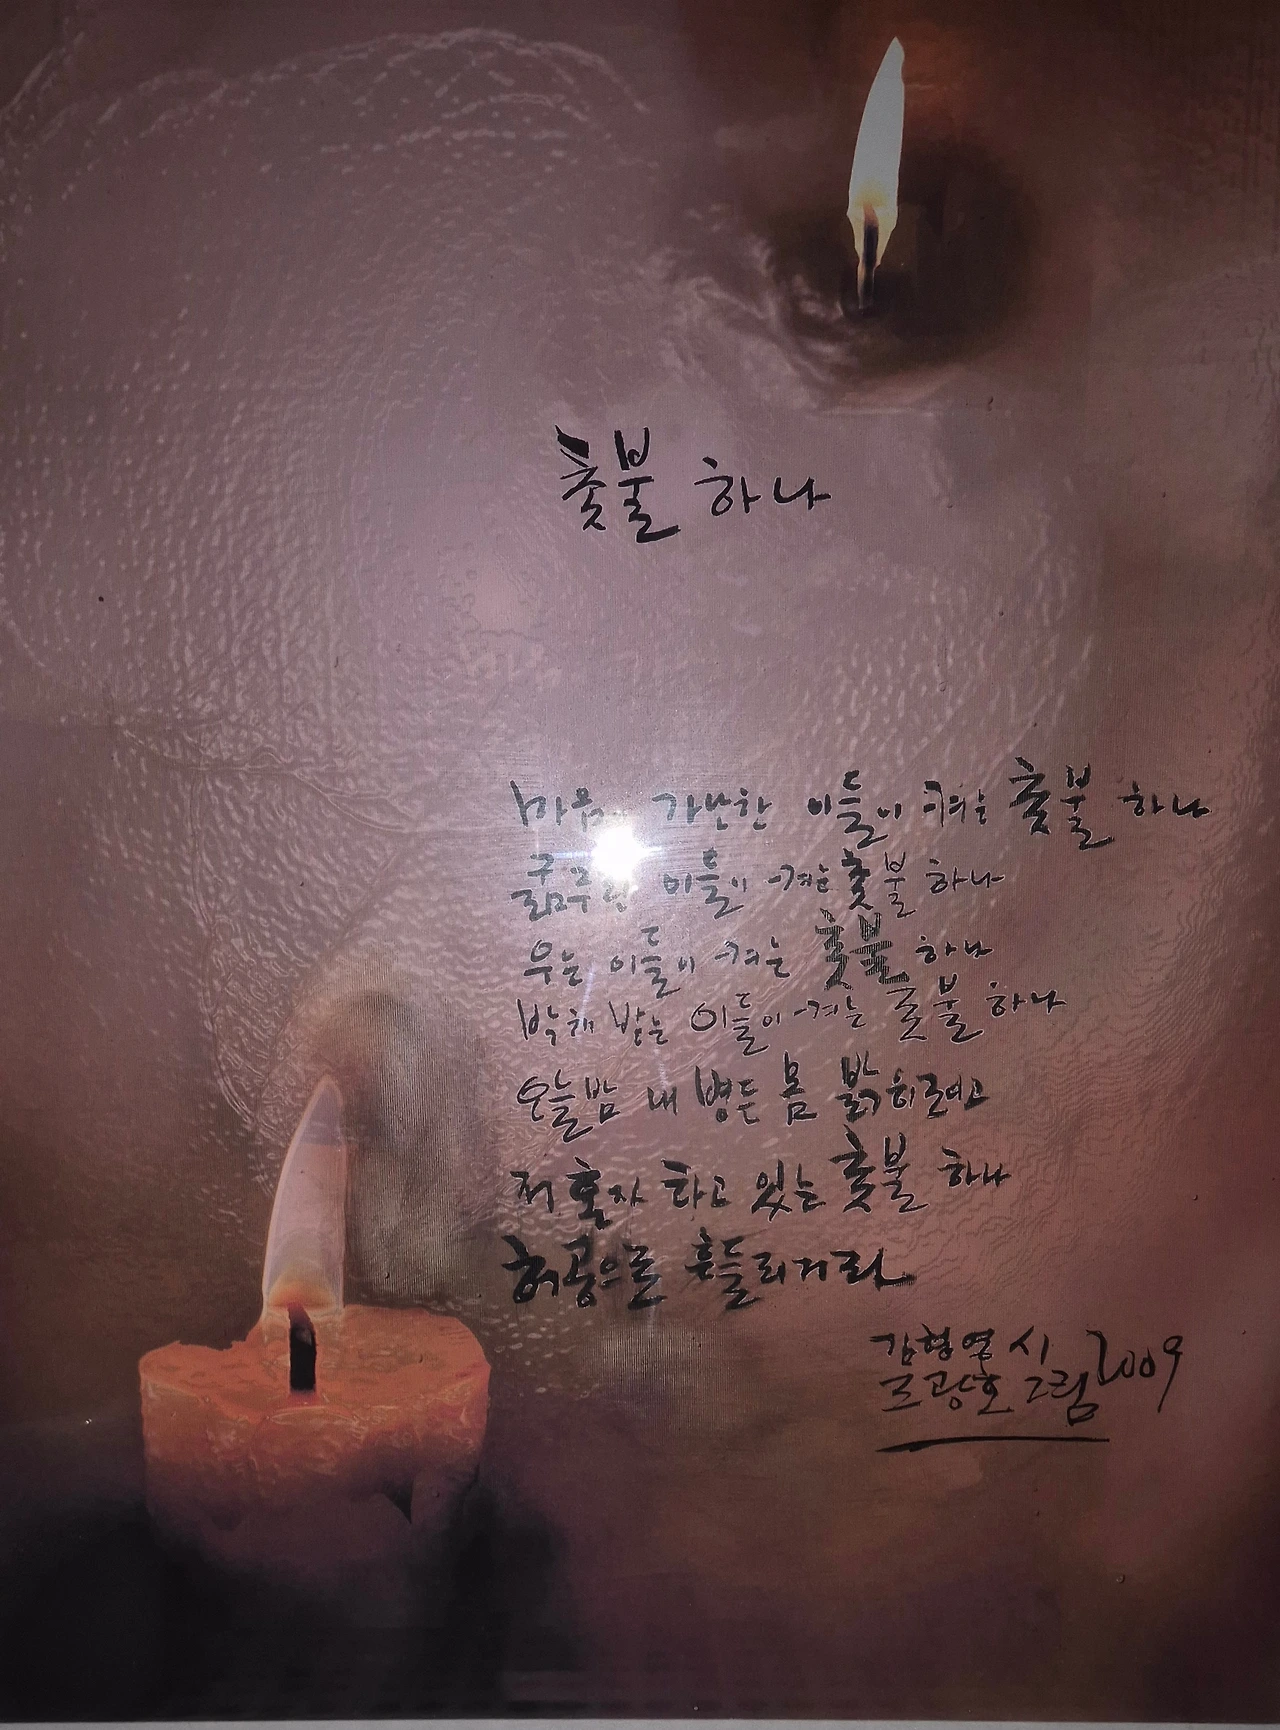 촛불 하나
마음 가난한 이들이 켜는 촛불 하나
굶주린 이들이 켜는 촛불 하나
우는 이들이 켜는 촛불 하나
박해 받는 이들이 켜는 촛불 하나
오늘밤 내 병든 몸 밝히려고
저 혼자 타고 있는 촛불 하나
허공으로 흔들리거라
김형영 시
조광호 그림 2009